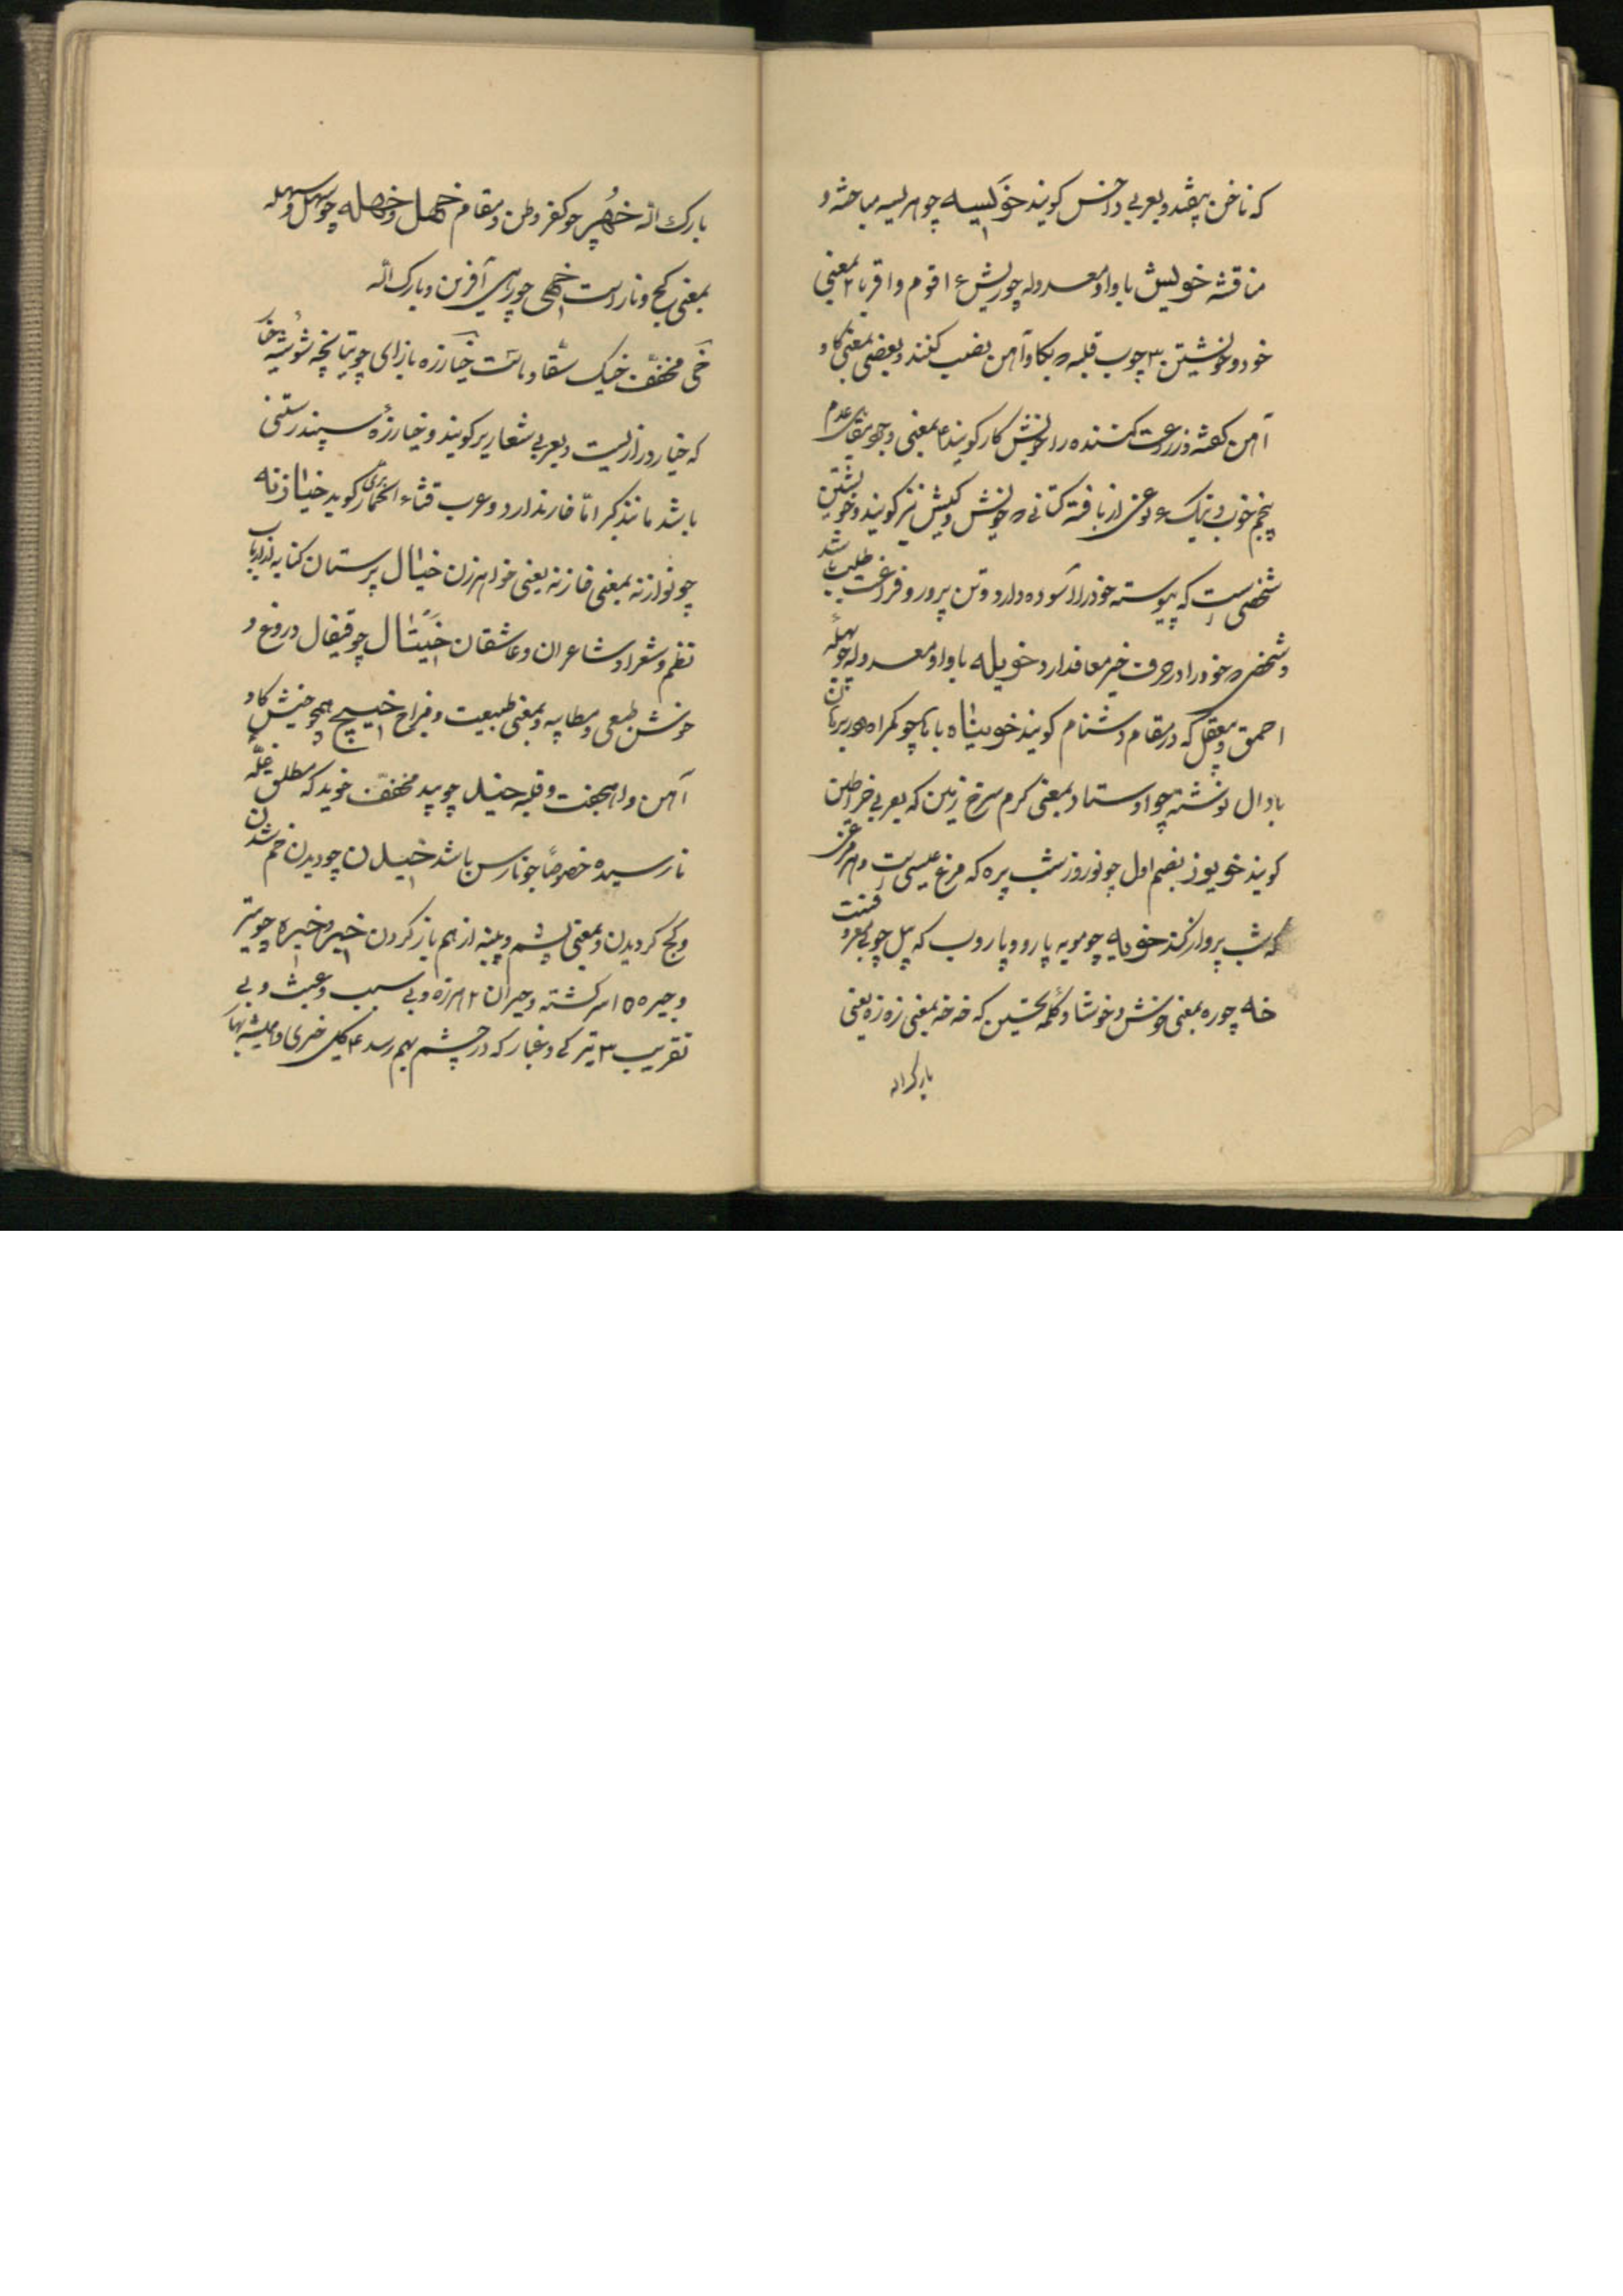 که ناخن پیفتد و بعربی داخس کویند خوَیسه چو هریسه مباحثه و
مناقشه خویش با واو معدوله چو ریش ۱ اقوام و اقربا ۲ بمعنی
خود و خویشتن ۳ چوب قلبه که کاو آهن نصب کنند و بعضی بمعنی کاو
آهن کفته و زراعت کننده را خویش کار کویند ۴ بمعنی وجود مقابل عدم
پنجم خوب و نیک ۶ نوعی از بافته کتانی که خویش و کیش نیز کویند و خویشتن
شخصی است که پیوسته خود را آسوده دارد و تن پرور و فراغت طلب باشد
و شخصی که خود را در حرف خیر معاف دارد خویله با واو معدوله چو
احمق و بیعقل که در مقام دشنام کویند خویناه با چو کمراه
با دال نوشته چو اوستاد بمعنی کرم سرخ زمین که بعربی خراطین
کویند خویوز بضم اول چو نوروز شب پره که مرغ عیسی است و هر مرغی
که شب پرواز کند خویه چو مویه پارو و پاروب که بیل چوبی
خه چو ره بمعنی خوش و خوشا و کلمه تحسین که خه خه بمعنی زه زه یعنی
بارک اله
بارک اله خهُر چو کفر وطن و مقام خهل و خهله چو سهل و سهله
بمعنی کج و ناراست خهی چو رهی آفرین و بارک الله
خَی مخفّف خیک سقّا و ماست خیارزه بازای چو تپانچه
که خیار دراز است و بعربی شعاریر کویند و خیارزهٔ سپند رستنی
باشد مانند کبر امّا خار ندارد و عرب قثاء الحمار کوید خیازنه
چو نوازنه بمعنی خازنه یعنی خواهر زن خیال پرستان کنایه از ارباب
نظم و شعرا و شاعران و عاشقان خَیتال چو قیفال دروغ و
خوش طبعی و مطایبه و بمعنی طبیعت و مزاج خیچ همچو خیش کاو
آهن و قلبه خید چو بید مخفّف خوید که مطلق غلّهٔ
نارسیده خصوصاً جو نارس باشد خیدن چو دیدن خم شدن
و کج کردیدن و بمعنی پشم و پنبه از هم باز کردن خیر و خیره چو تیر
و جیره ۱ سرکشته و حیران ۲ هرزه و بی سبب و عبث و بی
تقریب ۳ تیرکی و غبار که در چشم بهم رسد ۴ کل خیری و همیشه بهار